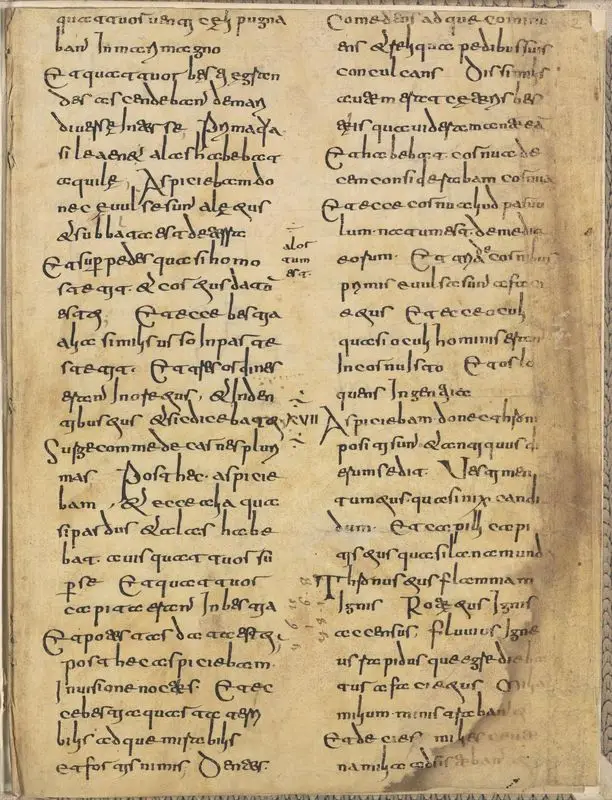 quattuor uenti celi pugna
bant In mari magno
Et quattuor bestie gran
des ascendebant de mari
diuerse Inter se Prima qua
si leaena alas habebat
aquile, Aspiciebam do
nec euulse sunt ale eius
& sublata est de terra
Et super pedes quasi homo
stetit & cor eius datum
est ei Et ecce bestia
alia similis urso In parte
stetit Et tres ordines
erant In ore eius, & In den
tibus eius & sic dicebat ei
Surge comede carnes pluri
mas Post hec aspicie
bam, & ecce alia qua
si pardus & alas habe
bat auis quattuor su
per se Et quattuor
capita erant In bestia
Et potestas data est ei
post hec aspiciebam
In uisione noctis Et ec
ce bestia quarta terri
bilis adque mirabilis
et fortis nimis Dentes
Comedens adque
ens & reliqua pedibus suis
conculcans Dissimilis
autem erat ceteris bes
tiis quas uideram ante eam
Et habebat cornua de
cem considerabam cornua
Et ecce cornu aliud paruu
lum natum est de medio
eorum Et tria de cornibus
primis euulsa sunt a faci
e eius Et ecce oculi
quasi oculi hominis erant
In cornu Isto Et os lo
quens Ingentia
XVII
Aspiciebam donec throni
positi sunt & antiquus di
erum sedit Vestimen
tum eius quasi nix candi
dum Et capilli capi
tis eius quasi lana munda
Thronus eius flammam
Ignis Rote eius Ignis
accensus, fluuius Igne
us rapidusque egredieba
tur a facie eius
milium ministrabant
Et decies milies